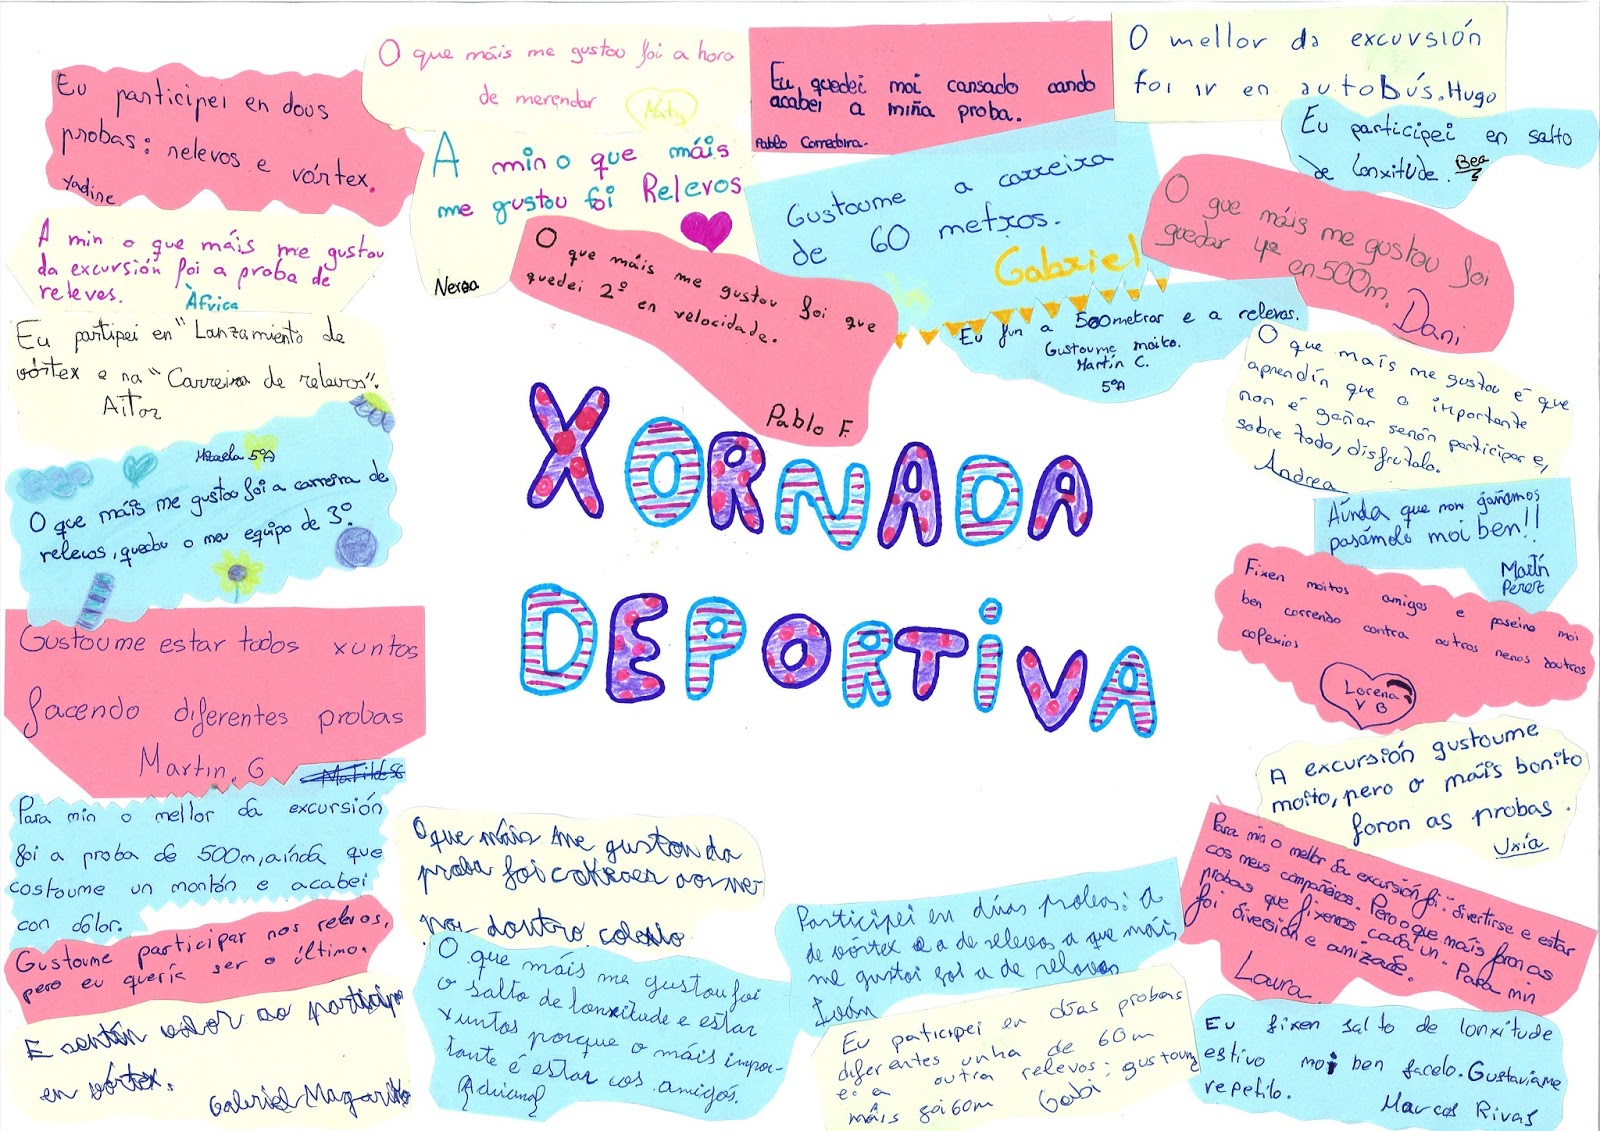 Eu participei en dous
probas: relevos e vórtex.
Yadine
O que máis me gustou foi a hora
de merendar
A min o que máis
me gustou foi Relevos
Nerea
Eu quedei moi cansado cando
acabei a miña proba.
Pablo
O mellor da excursión
foi ir en autobús. Hugo
Eu participei en salto
de lonxitude. Bea
A min o que máis me gustou
da excursión foi a proba de
releves.
África
O que máis me gustou foi que
quedei 2º en velocidade.
Pablo F.
Gustoume a carreira
de 60 metros.
Gabriel
O que máis me gustou foi
quedar 4º
en 500m.
Dani
Eu fun a 500 metros e a relevos.
Gustoume moito.
Martín C.
5ºA
Eu partipei en "Lanzamiento de
vórtex e na "Carreira de relevos".
Aitor
O que máis me gustou é que
aprendín que o importante
non é gañar senón participar e,
sobre todo, disfrutalo.
Andrea
Micaela 5ºA
O que máis me gustou foi a carreira de
relevos, quedou o meu equipo de 3º.
XORNADA
DEPORTIVA
Aínda que non gañamos
pasámolo moi ben!!
Martín
Pérez
Fixen moitos amigos e paseino moi
ben correndo contra outros nenos doutros
colexios
Lorena
V B
Gustoume estar todos xuntos
facendo diferentes probas
Martín. G
A excursión gustoume
moito, pero o máis bonito
foron as probas.
Uxía
Para min o mellor da excursión
foi a proba de 500m, aínda que
costoume un montón e acabei
con dolor.
O que máis me gustou da
proba foi correr
doutro colexio
Para min o mellor da excursión foi: divertirse e estar
cos meus compañeiros. Pero o que máis foron as
probas que fixemos cada un. Para min
foi diversión e amizade.
Laura
Gustoume participar nos relevos,
pero eu quería ser o último.
Participei en dúas probas: a
de vórtex e a de relevos a que máis
me gustou foi a de relevos
Iván
O que máis me gustou foi
o salto de lonxitude e estar
xuntos porque o máis impor-
tante é estar cos amigos.
Adriana
E sentín valor ao participar
en vórtex.
Gabriel Magariño
Eu participei en dúas probas
diferentes unha de 60m
e a outra relevos: gustoume
máis foi 60m Gabi
Eu fixen salto de lonxitude
estivo moi ben facelo. Gustaríame
repetilo.
Marcos Rivas